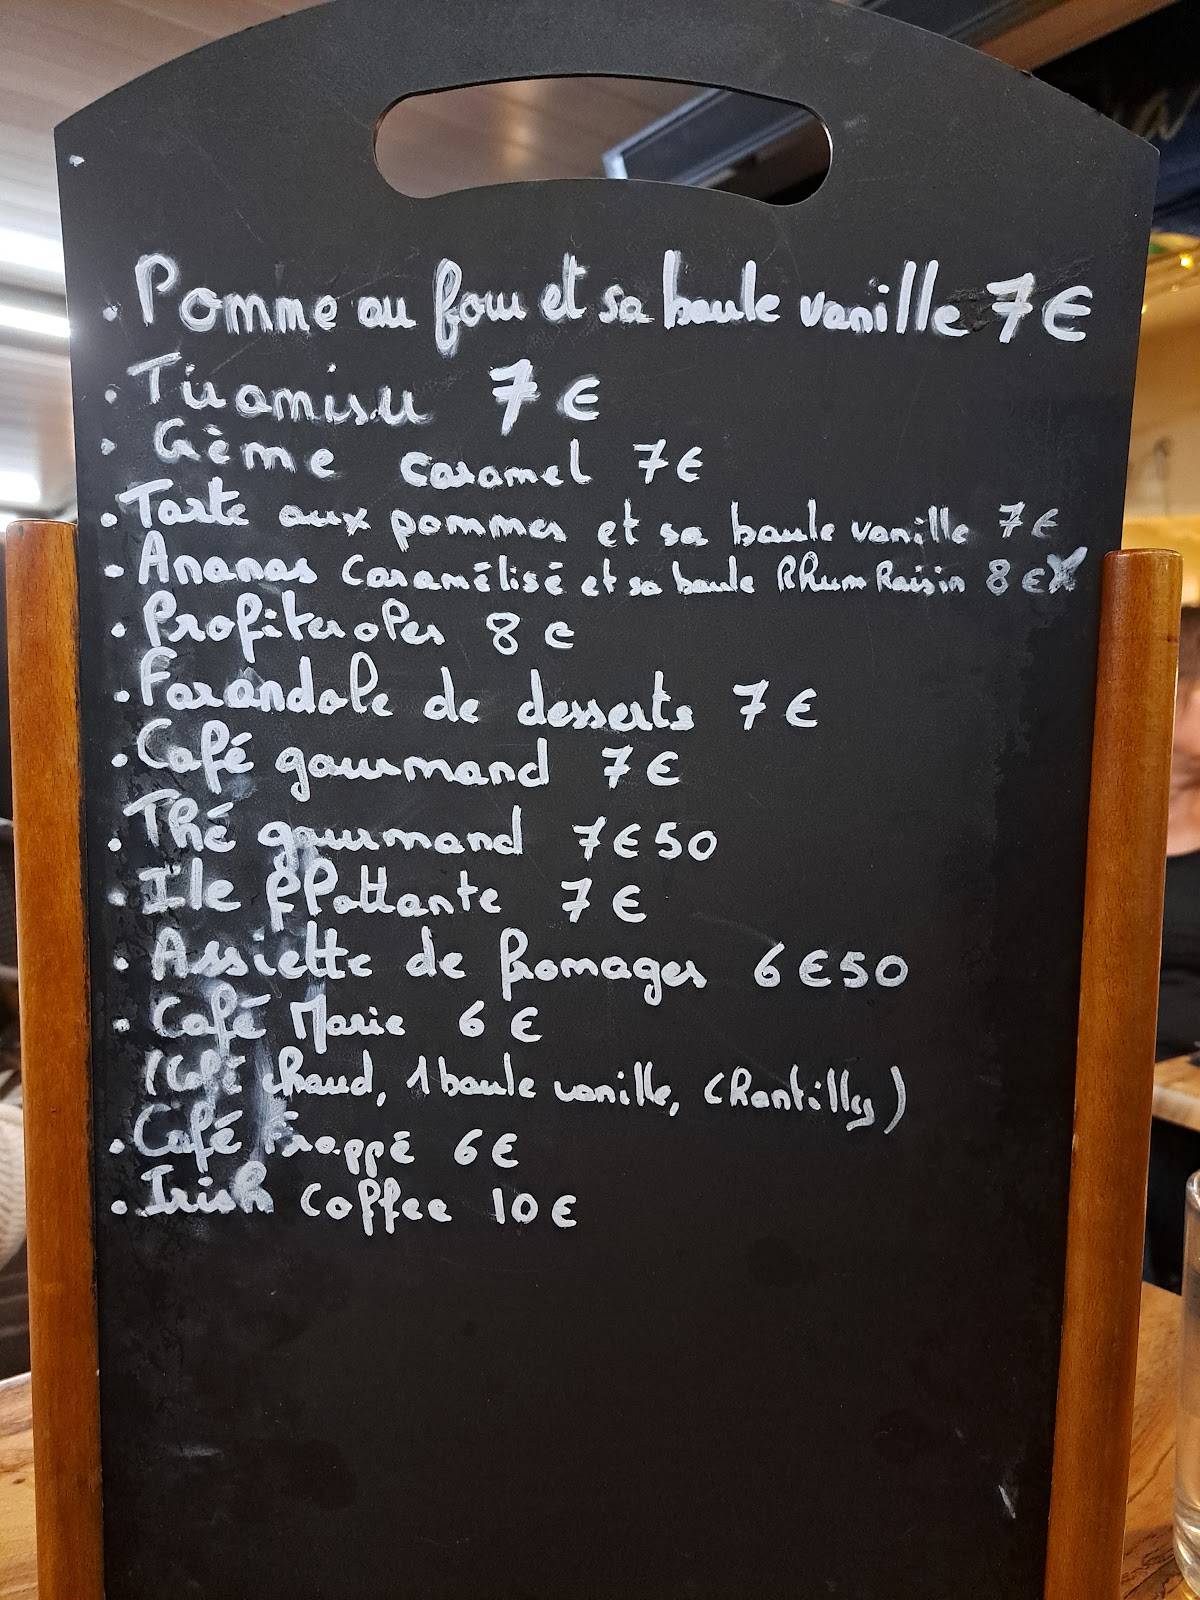 . Pomme au four et sa boule vanille 7€
. Tiramisu 7€
. Crème caramel 7€
. Tarte aux pommes et sa boule vanille 7€
. Ananas Caramélisé et sa boule Rhum Raisin 8€
. Profiteroles 8€
. Farandole de desserts 7€
. Café gourmand 7€
. Thé gourmand 7€50
. Ile flottante 7€
. Assiette de fromages 6€50
. Café Marie 6€
(Café chaud, 1 boule vanille, Chantilly)
. Café Frappé 6€
. Irish Coffee 10€